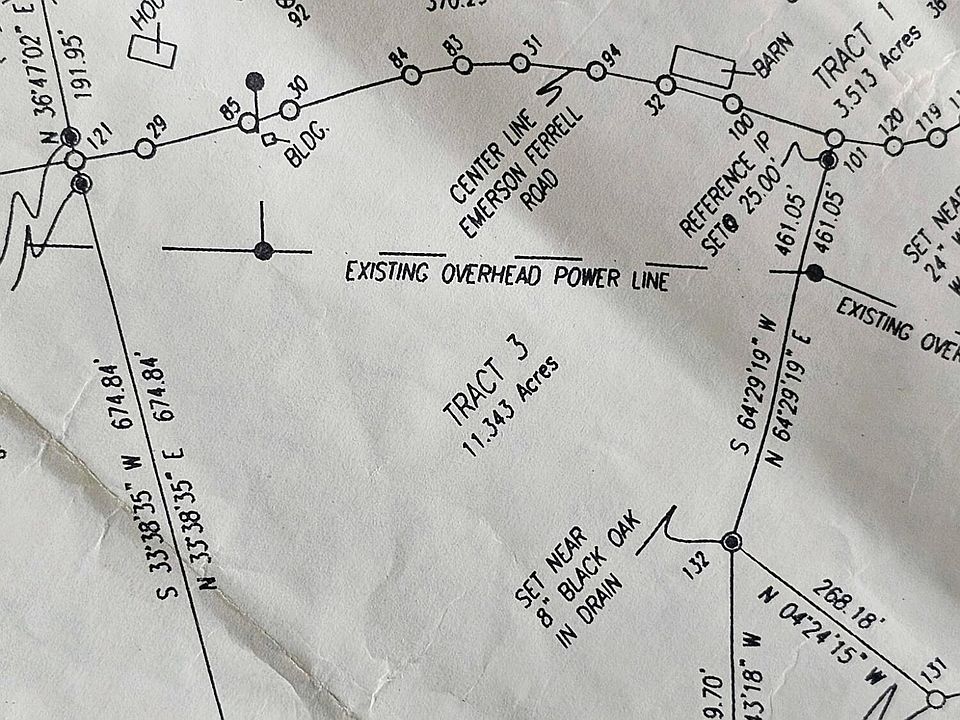 370.29
HOU
92
N 36°47'02" E
191.95'
121
29
85
30
BLDG.
84
83
31
94
CENTER LINE
EMERSON FERRELL
ROAD
32
BARN
100
TRACT 1
3.513 Acres
36
REFERENCE IP
SET@ 25.00'
101
120
119
461.05'
461.05'
SET NEA
24" W
EXISTING OVERHEAD POWER LINE
EXISTING OVER
TRACT 3
11.343 Acres
S 33°38'35" W 674.84'
N 33°38'35" E 674.84'
S 64°29'19" W
N 64°29'19" E
SET NEAR
8" BLACK OAK
IN DRAIN
132
268.18'
N 04°24'15" W
131
9.70'
43'18" W